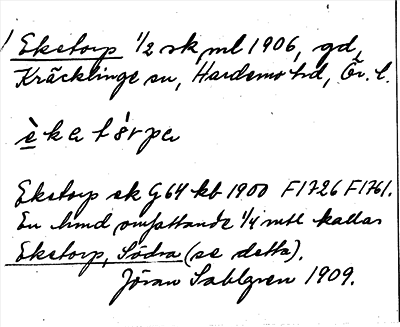 Ekstorp 1/2 sk, ml 1906, gd,
Kräcklinge sn, Hardemo hd, Ör. l.
è k a t 8́ r p a
Ekstorp sk G64 kb 1900 F1726 F1761.
En hmd omfattande 1/4 mtl kallas
Ekstorp, Södra (se detta).
Jöran Sahlgren 1909.